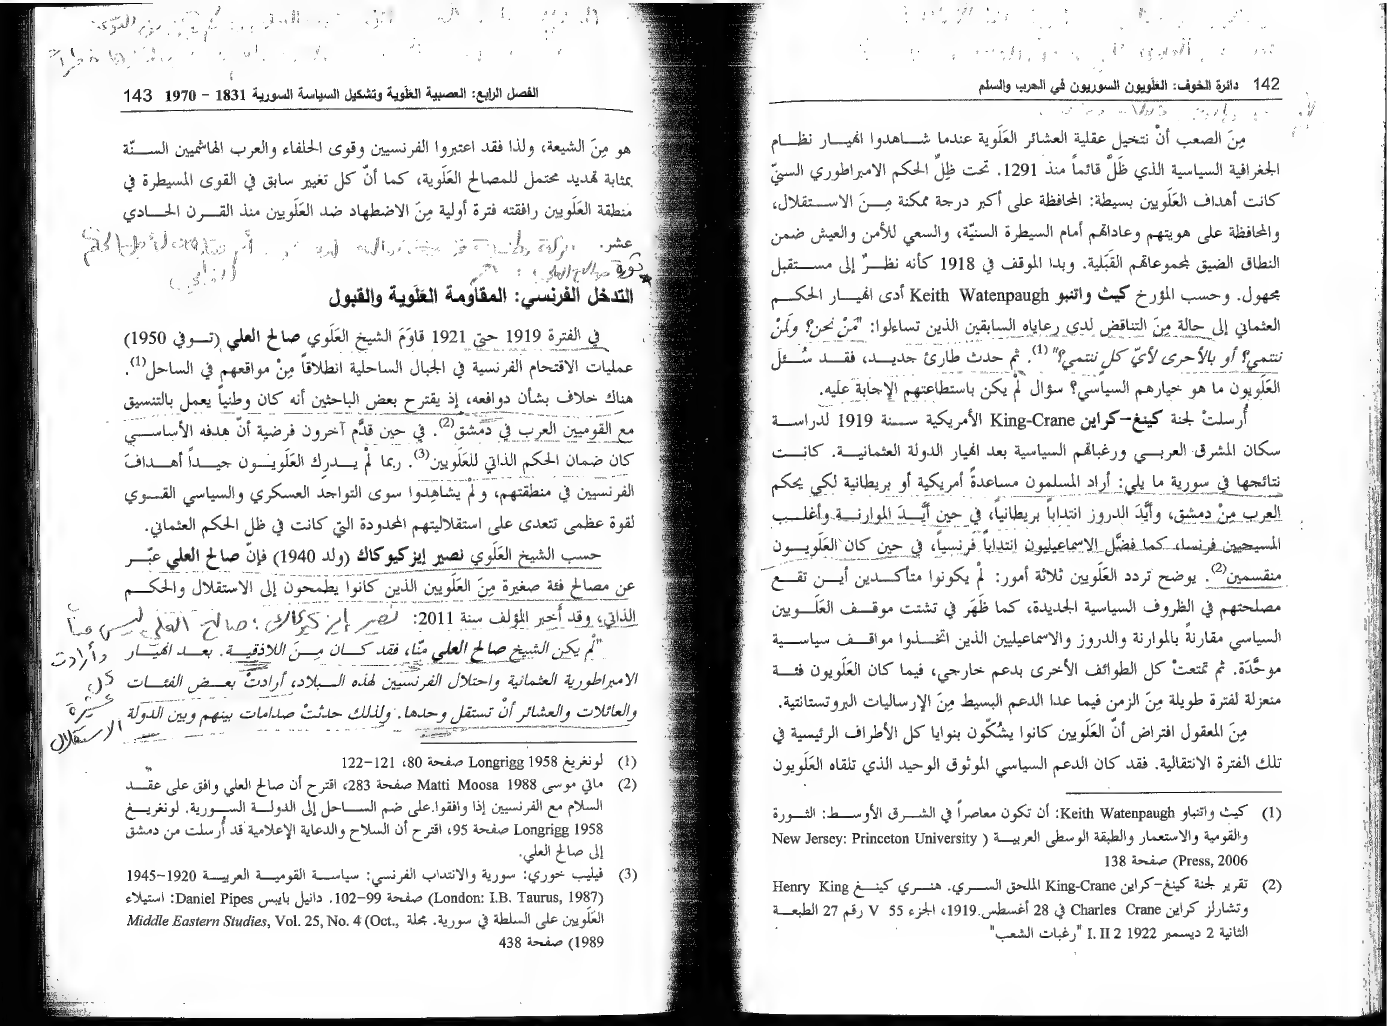 142 دائرة الخوف: العلويون السوريون في الحرب والسلم
مِنَ الصعب أنْ نتخيل عقلية العشائر العَلَوية عندما شاهدوا انهيار نظام
الجغرافية السياسية الذي ظَلَّ قائماً منذ 1291. تحت ظِلِّ الحكم الامبراطوري السنيّ
كانت أهداف العَلَويين بسيطة: المحافظة على أكبر درجة ممكنة مِنَ الاستقلال،
والمحافظة على هويتهم وعاداتهم أمام السيطرة السنيّة، والسعي للأمن والعيش ضمن
النطاق الضيق لمجموعاتهم القَبَلية. وبدا الموقف في 1918 كأنه نظرٌ إلى مستقبل
مجهول. وحسب المؤرخ كيث واتنبو Keith Watenpaugh أدى انهيار الحكم
العثماني إلى حالة مِنَ التناقض لدى رعاياه السابقين الذين تساءلوا: "مَنْ نحن؟ ولِمَنْ
ننتمي؟ أو بالأحرى لأيّ كلٍ ننتمي؟" (1). ثم حدث طارئ جديد، فقد سُئل
العَلَويون ما هو خيارهم السياسي؟ سؤال لمْ يكن باستطاعتهم الإجابة عليه.
أُرسلتْ لجنة كينغ-كراين King-Crane الأمريكية سنة 1919 لدراسة
سكان المشرق العربي ورغباتهم السياسية بعد انهيار الدولة العثمانية. كانت
نتائجها في سورية ما يلي: أراد المسلمون مساعدةً أمريكية أو بريطانية لكي يحكم
العرب مِنْ دمشق، وأيَّدَ الدروز انتداباً بريطانياً، في حين أيَّدَ الموارنة وأغلب
المسيحيين فرنسا، كما فضَّل الاسماعيليون انتداباً فرنسياً، في حين كان العَلَويون
منقسمين(2). يوضح تردد العَلَويين ثلاثة أمور: لمْ يكونوا متأكدين أين تقع
مصلحتهم في الظروف السياسية الجديدة، كما ظَهَر في تشتت موقف العَلَويين
السياسي مقارنةً بالموارنة والدروز والاسماعيليين الذين اتخذوا مواقف سياسية
موحَّدَة. ثم تمتعتْ كل الطوائف الأخرى بدعم خارجي، فيما كان العَلَويون فئة
منعزلة لفترة طويلة مِنَ الزمن فيما عدا الدعم البسيط مِنَ الإرساليات البروتستانتية.
مِنَ المعقول افتراض أنّ العَلَويين كانوا يشُكّون بنوايا كل الأطراف الرئيسية في
تلك الفترة الانتقالية. فقد كان الدعم السياسي الموثوق الوحيد الذي تلقاه العَلَويون
(1) كيث واتنباو Keith Watenpaugh: أن تكون معاصراً في الشرق الأوسط: الثورة
والقومية والاستعمار والطبقة الوسطى العربية (New Jersey: Princeton University
Press, 2006) صفحة 138
(2) تقرير لجنة كينغ-كراين King-Crane الملحق السري. هنري كينغ Henry King
وتشارلز كراين Charles Crane في 28 أغسطس.1919، الجزء 55 V رقم 27 الطبعة
الثانية 2 ديسمبر 1922 I. II 2 "رغبات الشعب"
الفصل الرابع: العصبية العلوية وتشكيل السياسة السورية 1831 – 1970 143
هو مِنَ الشيعة، ولذا فقد اعتبروا الفرنسيين وقوى الحلفاء والعرب الهاشميين السنّة
بمثابة تهديد محتمل للمصالح العَلَوية، كما أنّ كل تغيير سابق في القوى المسيطرة في
منطقة العَلَويين رافقته فترة أولية مِنَ الاضطهاد ضد العَلَويين منذ القرن الحادي
عشر.
ثورة صالح العلي:
التدخل الفرنسي: المقاومة العَلَوية والقبول
في الفترة 1919 حتى 1921 قاوَمَ الشيخ العَلَوي صالح العلي (توفي 1950)
عمليات الاقتحام الفرنسية في الجبال الساحلية انطلاقاً مِنْ مواقعهم في الساحل(1).
هناك خلاف بشأن دوافعه، إذ يقترح بعض الباحثين أنه كان وطنياً يعمل بالتنسيق
مع القوميين العرب في دمشق(2). في حين قدَّم آخرون فرضية أنّ هدفه الأساسي
كان ضمان الحكم الذاتي للعَلَويين(3). ربما لمْ يدرِك العَلَويون جيداً أهدافَ
الفرنسيين في منطقتهم، ولمْ يشاهدوا سوى التواجد العسكري والسياسي القوي
لقوة عظمى تتعدى على استقلاليتهم المحدودة التي كانت في ظل الحكم العثماني.
حسب الشيخ العَلَوي نصير إيزكيوكاك (ولد 1940) فإنّ صالح العلي عبَّر
عن مصالح فئة صغيرة مِنَ العَلَويين الذين كانوا يطمحون إلى الاستقلال والحكم
الذاتي، وقد أخبر المؤلف سنة 2011: نصير إيزكيوكاك: صالح العلي ليس منا
"لمْ يكن الشيخ صالح العلي منّا، فقد كان مِنَ اللاذقية. بعد انهيار
وأرادت
الامبراطورية العثمانية واحتلال الفرنسيين لهذه البلاد، أرادتْ بعض الفئات
والعائلات والعشائر أنْ تستقل وحدها. ولذلك حدثتْ صدامات بينهم وبين الدولة
الاستقلال
(1) لونغريغ Longrigg 1958 صفحة 80، 121-122
(2) ماتي موسى Matti Moosa 1988 صفحة 283، اقترح أن صالح العلي وافق على عقد
السلام مع الفرنسيين إذا وافقوا.على ضم الساحل إلى الدولة السورية. لونغريغ
Longrigg 1958 صفحة 95، اقترح أن السلاح والدعاية الإعلامية قد أُرسلت من دمشق
إلى صالح العلي.
(3) فيليب خوري: سورية والانتداب الفرنسي: سياسة القومية العربية 1920-1945
(London: I.B. Taurus, 1987) صفحة 99-102. دانيل بايبس Daniel Pipes: استيلاء
العَلَويين على السلطة في سورية. مجلة Middle Eastern Studies, Vol. 25, No. 4 (Oct.,
1989) صفحة 438